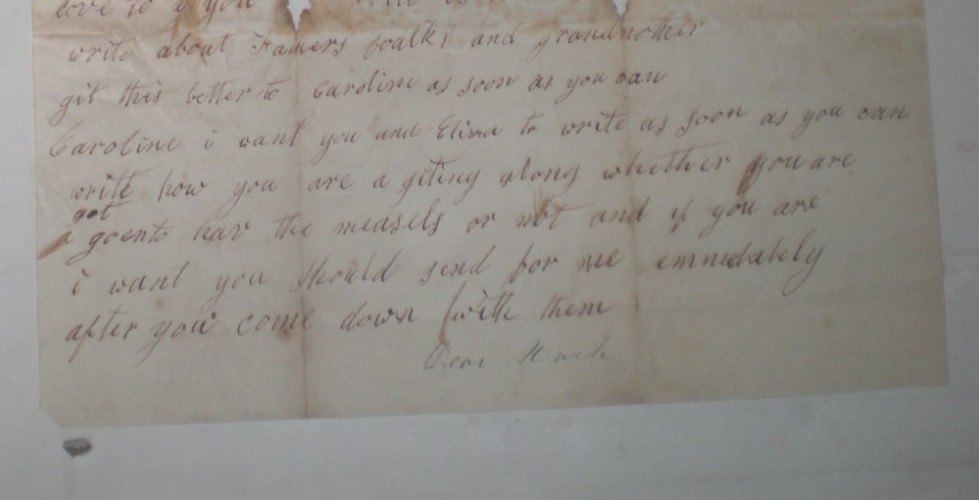 love to you
write about Framers foalks and grandmother
git this letter to Caroline as soon as you can
Caroline i want you and Eliza to write as soon as you can
write how you are a giting along whether you are
got
a goento hav the measels or not and if you are
i want you should send for me emmedately
after you come down with them
Dear